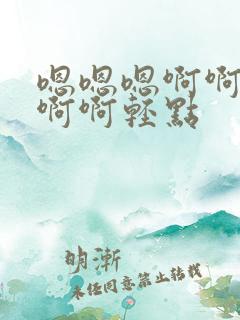 嗯嗯嗯啊啊
啊啊轻點
明漸
未经同意禁止转载